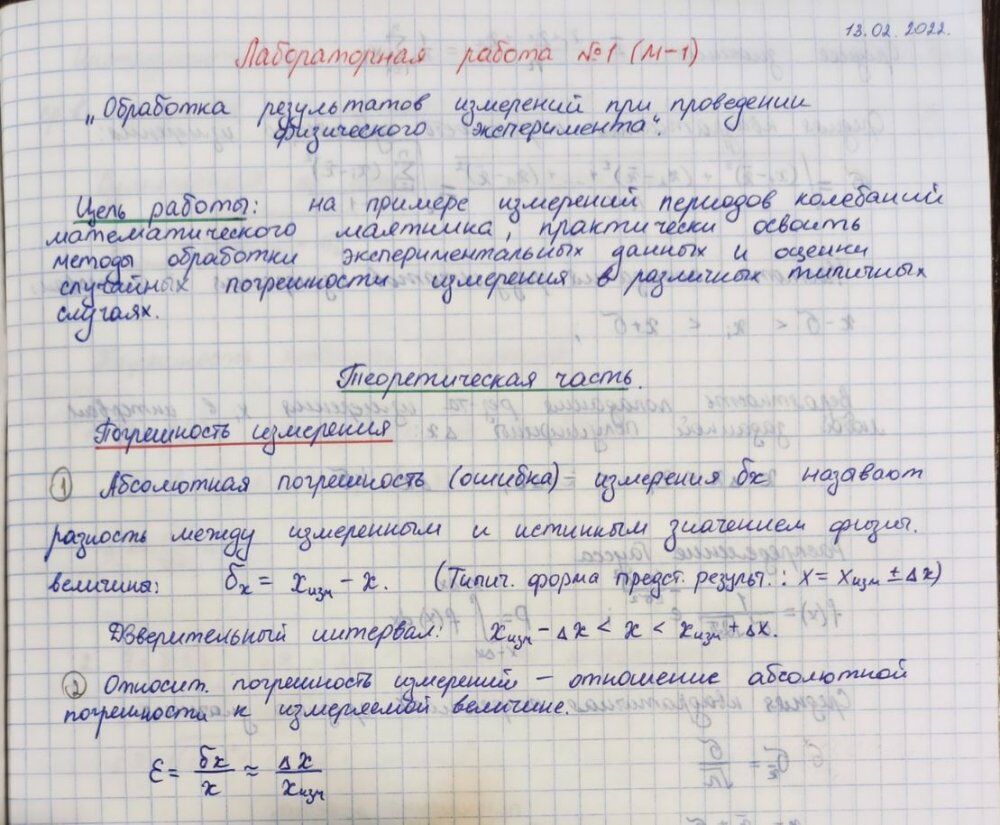 13.02.2022.
Лабораторная работа №1 (М-1)
„Обработка результатов измерений при проведении
физического эксперимента".
Цель работы: на примере измерений периодов колебаний
математического маятника, практически освоить
методы обработки экспериментальных данных и оценки
случайных погрешности измерения в различных типичных
случаях.
Теоретическая часть.
Погрешность измерения
① Абсолютная погрешность (ошибка) измерения δx называют
разность между измеренным и истинным значением физич.
величины: δx = xизм - x. (Типич. форма предст. результ.: x = xизм ± Δx)
Доверительный интервал: xизм - Δx < x < xизм + Δx.
② Относит. погрешность измерений – отношение абсолютной
погрешности к измеряемой величине.
ε = δx/x ≈ Δx/xизм